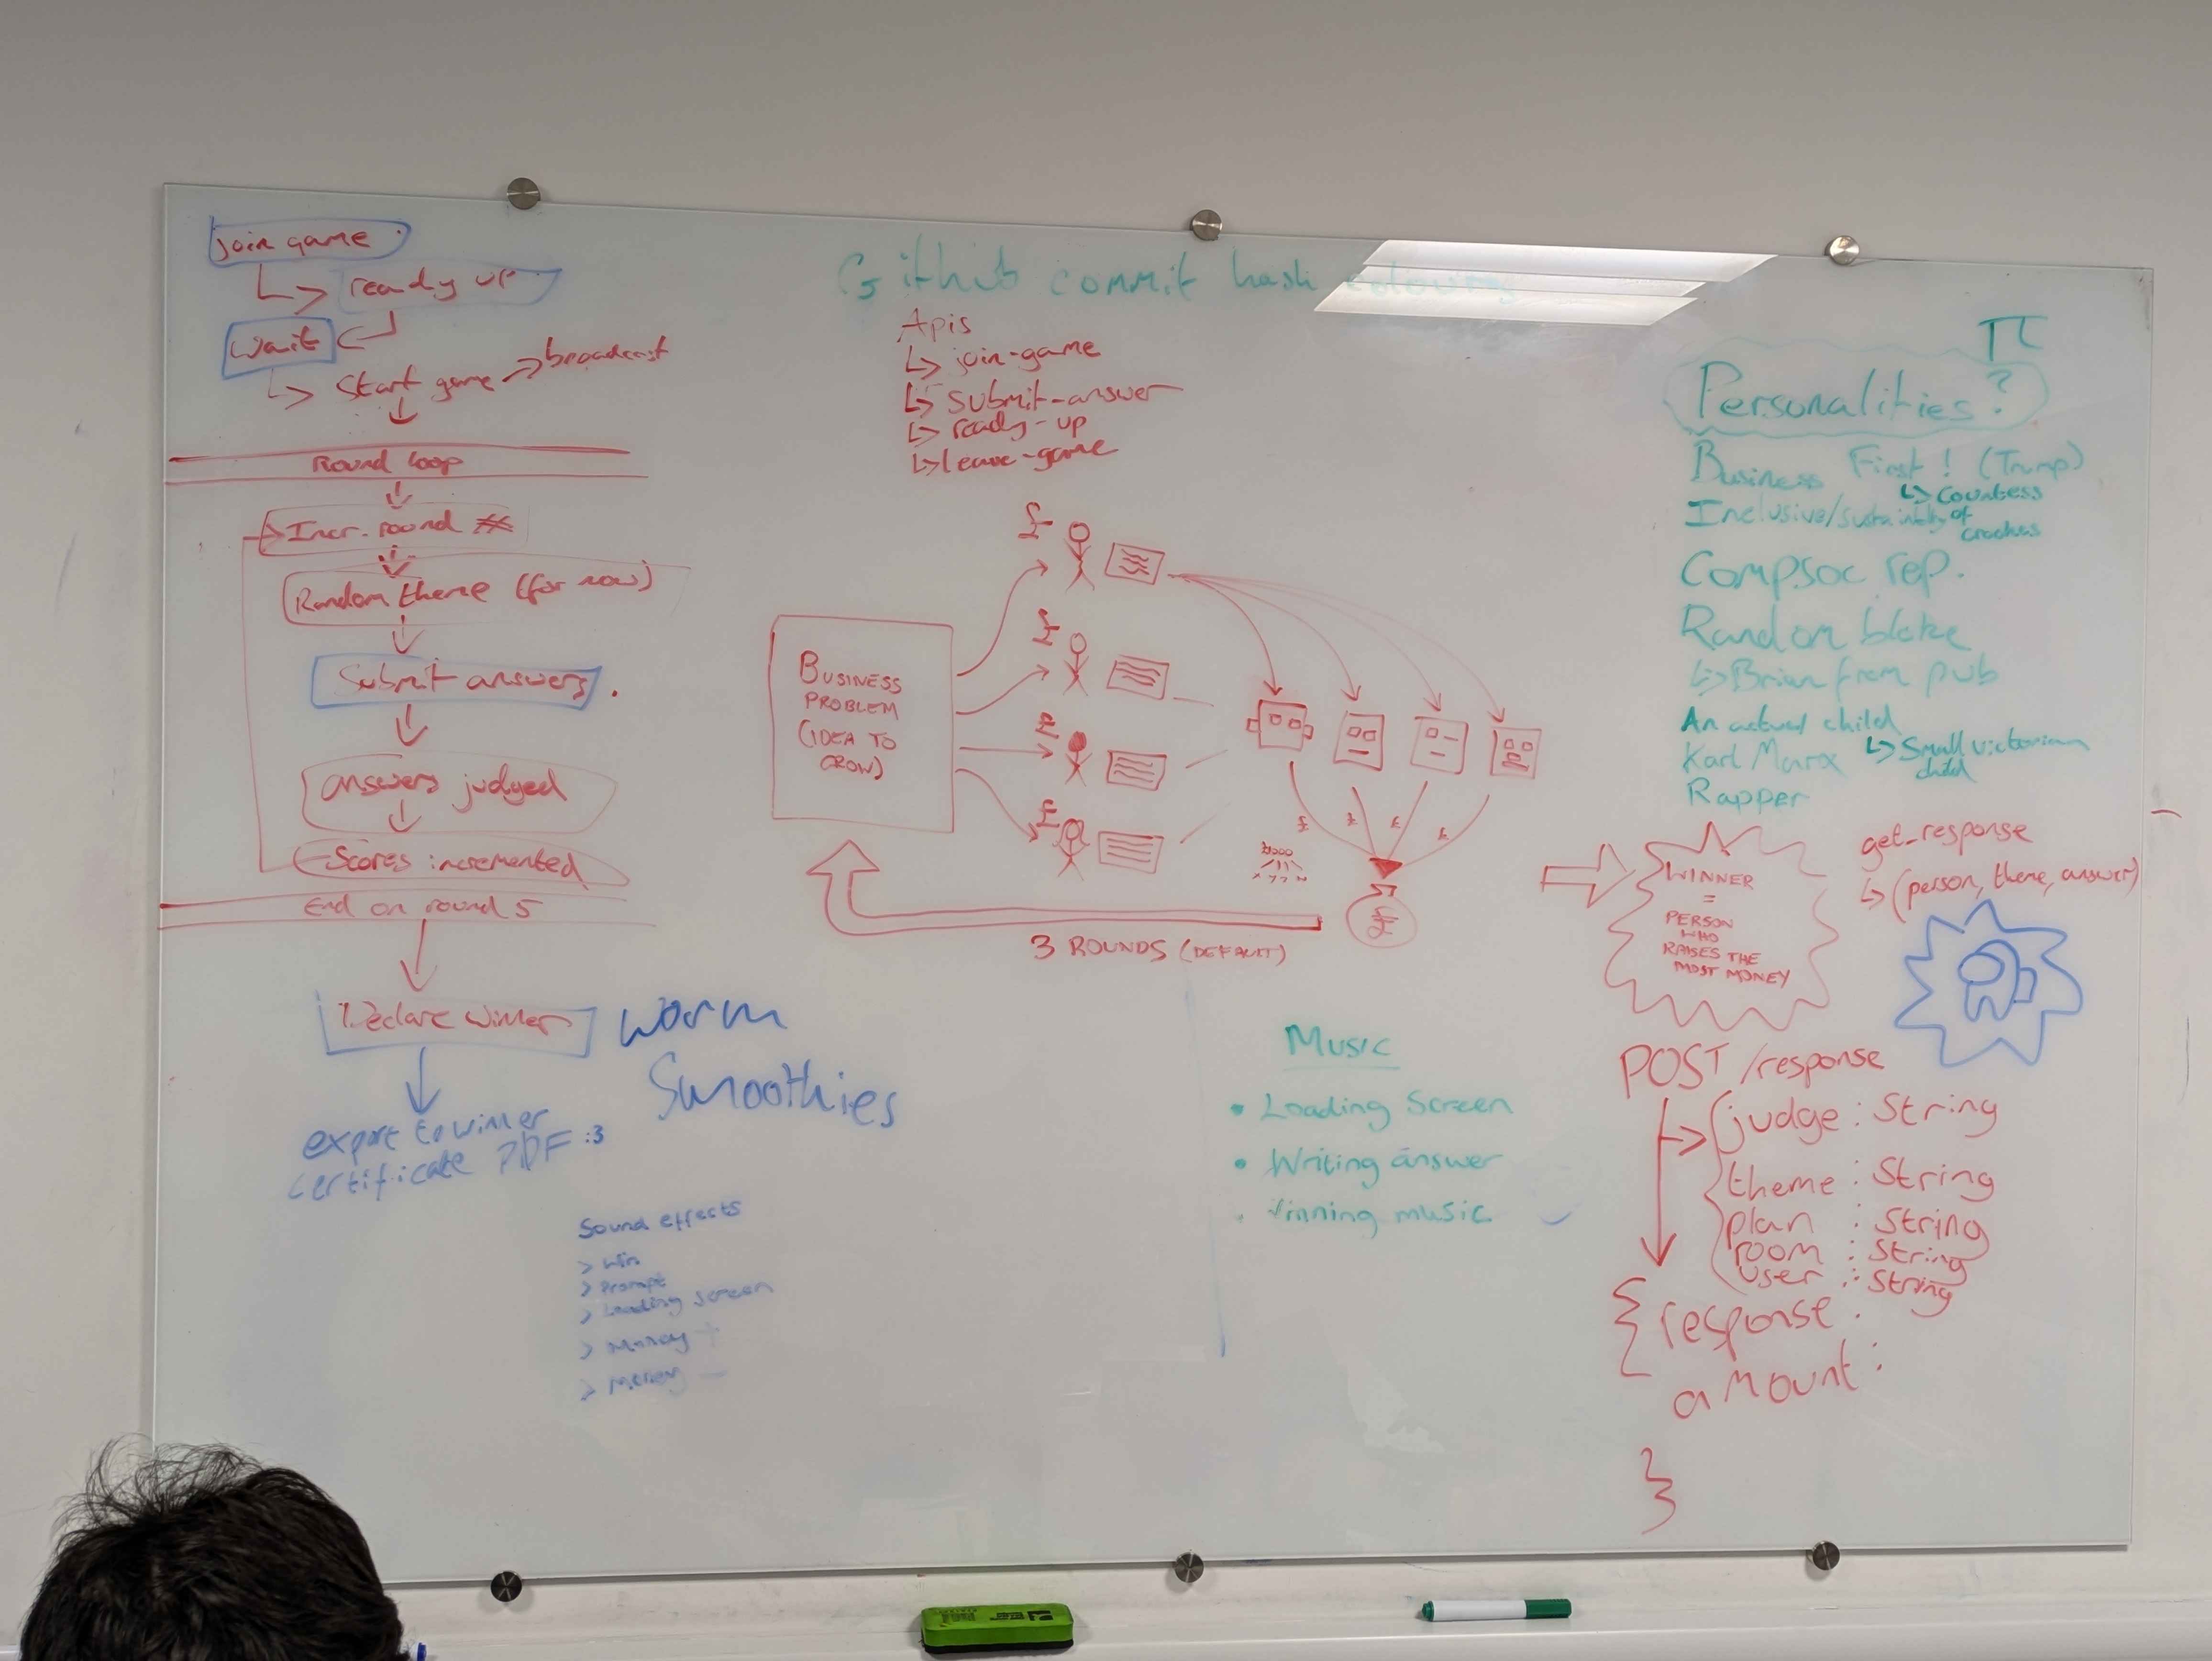 join game
↳ ready up
wait
↳ Start game → broadcast
Round loop
Incr. round #
Random theme (for now)
Submit answers
answers judged
Scores incremented
End on round 5
Declare winner
export to winner
certificate PDF :3
worm
Smoothies
Sound effects
> Win
> Prompt
> Loading screen
> Money +
> Money -
Github commit hash colours
Apis
↳ join-game
↳ submit-answer
↳ ready-up
↳ leave-game
BUSINESS
PROBLEM
(IDEA TO
GROW)
£
£
£
£
£
£
£
£
£
3 ROUNDS (DEFAULT)
WINNER
=
PERSON
WHO
RAISES THE
MOST MONEY
Music
• Loading Screen
• Writing answer
winning music
π
Personalities?
Business First! (Trump)
↳ Countess
of
crookus
Inclusive/sustainability
Compsoc rep.
Random bloke
↳ Brian from pub
An actual child
↳ Small victorian
child
Karl Marx
Rapper
get_response
↳ (person, theme, answer)
POST /response
judge : String
theme : String
plan : String
room : String
user : String
{ response :
amount :
}